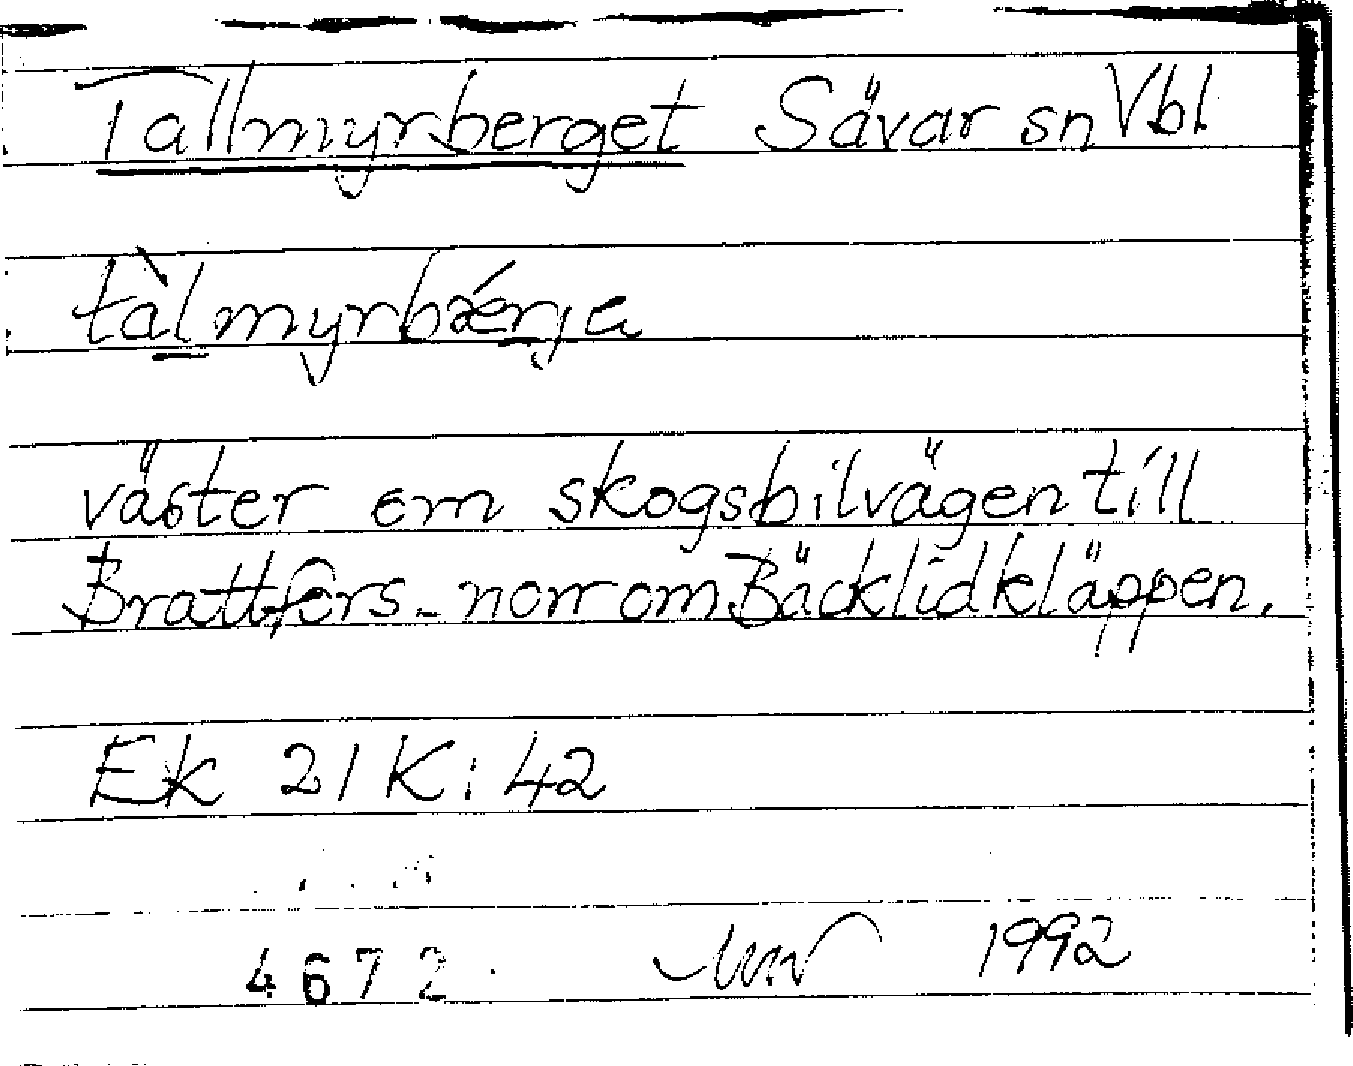 Tallmyrberget Sävar sn Vbl
tàlmyrbǽrja
väster om skogsbilvägen till
Brattfors - norr om Bäcklidkläppen.
Ek 21K:42
4672 1992